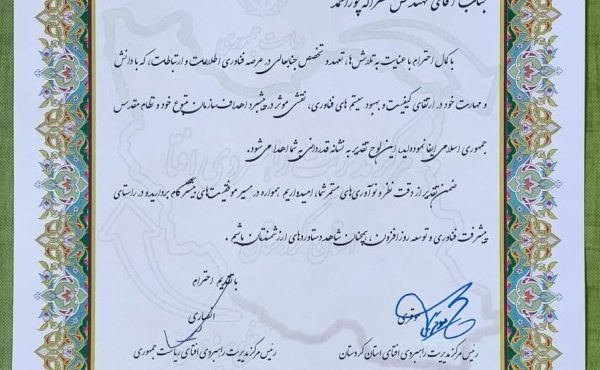 جناب آقای مهندس نصراله پوراحمد
با کمال احترام با عنایت به تلاش‌ها، تعهد و تخصص جنابعالی در عرصه فناوری اطلاعات و ارتباطات، که با دانش
و مهارت خود در ارتقای کیفیت و بهبود سیستم های فناوری، نقشی موثر در پیشبرد اهداف سازمان متبوع خود و نظام مقدس
جمهوری اسلامی ایفا نموده‌اید، این لوح تقدیر به نشانه قدردانی به شما اهدا می شود.
ضمن تقدیر از دقت نظر و نوآوری های مستمر شما، امیدواریم همواره در مسیر موفقیت های بیشتر گام بردارید و در راستای
پیشرفت فناوری و توسعه روزافزون، همچنان شاهد دستاوردهای ارزشمندتان باشیم.
با تقدیم احترام
انصاری
رئیس مرکز مدیریت راهبردی افتای استان کردستان
رئیس مرکز مدیریت راهبردی افتای ریاست جمهوری